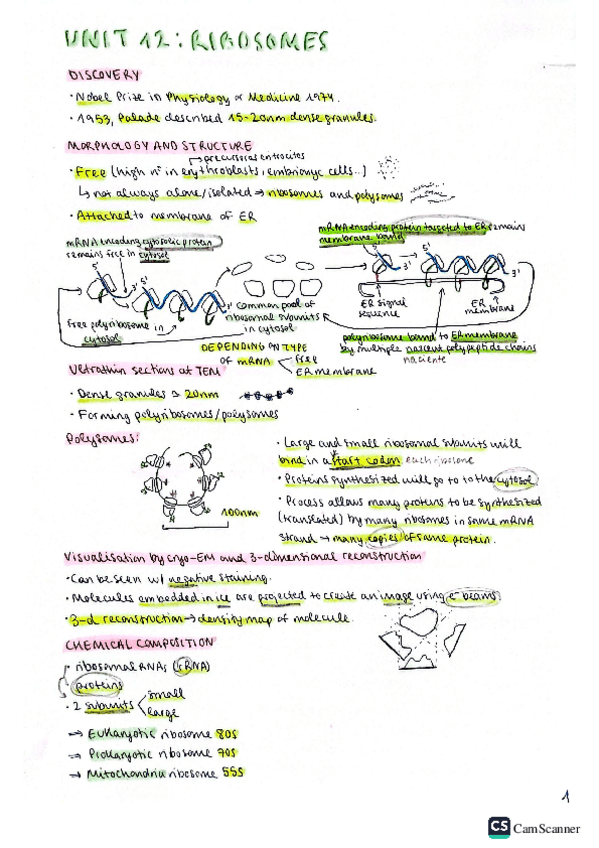 UNIT 12: RIBOSOMES
DISCOVERY
· Nobel Prize in Physiology or Medicine 1974.
· 1953, Palade described 15-20nm dense granules.
MORPHOLOGY AND STRUCTURE
precursoras entrocites
· Free (high nº in erythroblasts, embrionyc cells...)
↳ not always alone/isolated → ribosomes and polysomes
· Attached to membrane of ER
mRNA encoding cytosolic protein
remains free in cytosol
mRNA encoding protein targeted to ER remains
membrane bound
5'
5'
3'
5'
5'
3'
Free polyribosome in
cytosol
Common pool of
ribosomal subunits
in cytosol
ER signal
sequence
ER
membrane
polyribosome bound to ER membrane
by multiple nascent polypeptide chains
naciente
DEPENDING ON TYPE
of mRNA
free
ER membrane
Vetrathin sections at TEM
· Dense granules ≃ 20nm
· Forming polyribosomes/polysomes
Polysomes:
100nm
· Large and small ribosomal subunits will
bind in a start codon each ribosome
· Proteins synthesized will go to to the cytosol
· Process allows many proteins to be synthesized
(translated) by many ribosomes in same mRNA
strand → many copies of same protein.
Visualisation by cryo-EM and 3-dimensional reconstruction
· Can be seen w/ negative staining.
· Molecules embedded in ice are projected to create an image using e⁻ beams.
· 3-d reconstruction → density map of molecule.
CHEMICAL COMPOSITION
ribosomal RNAs (rRNA)
proteins
· 2 subunits
small
large
→ Eukaryotic ribosome 80S
→ Prokaryotic ribosome 70S
→ Mitochondria ribosome 55S
1
CS CamScanner